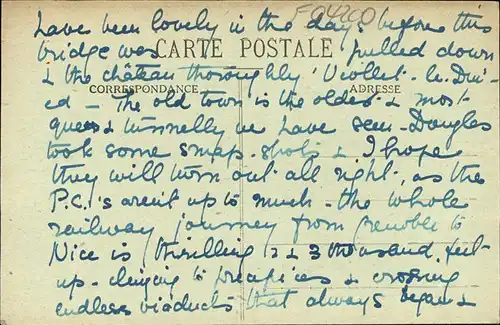 F 04200
have been lovely in the days before this
bridge was CARTE POSTALE pulled down
& the château thoroughly 'Viollet-le-Duc-
CORRESPONDANCE ADRESSE
ed - The old town is the oldest & most
queer & tunnelly we have seen - Douglas
took some snap-shots & I hope
they will turn out all right, as the
P.C.'s aren't up to much - the whole
railway journey from Grenoble to
Nice is thrilling 2 & 3 thousand feet
up - clinging to precipices & crossing
endless viaducts that always began &